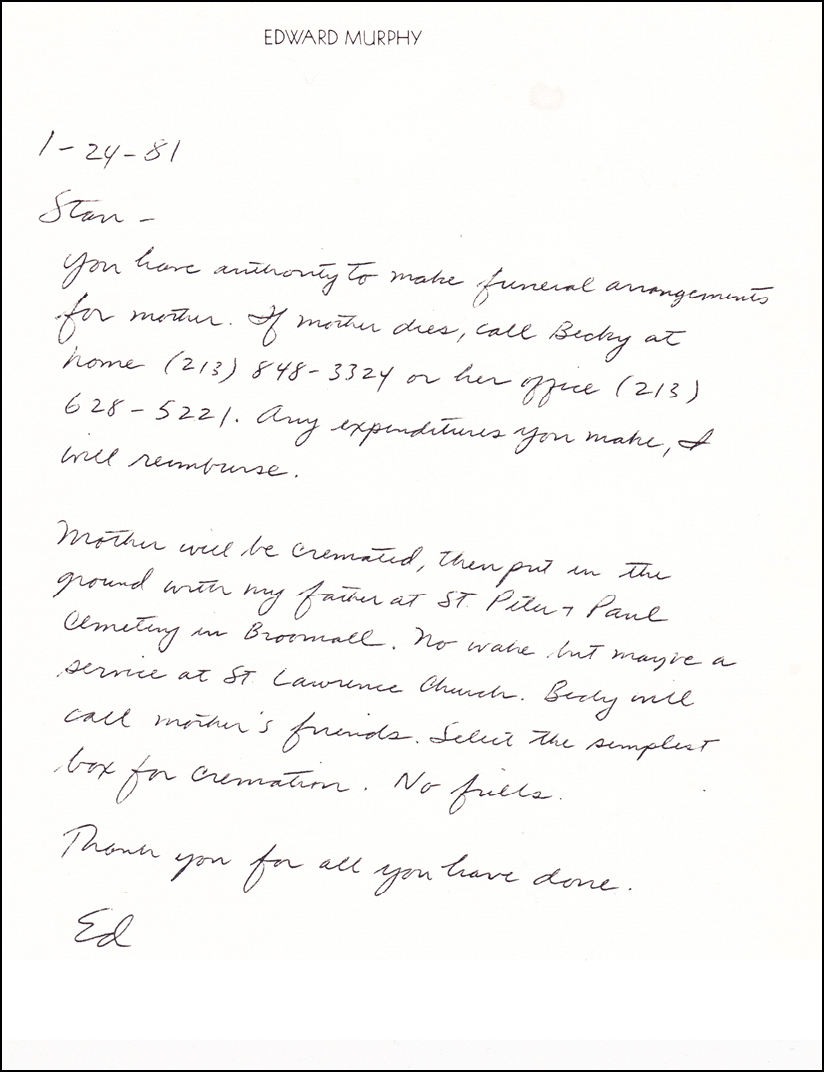 EDWARD MURPHY
1-24-81
Stan -
You have authority to make funeral arrangements
for mother. If mother dies, call Becky at
home (213) 848-3324 or her office (213)
628-5221. Any expenditures you make, I
will reimburse.
Mother will be cremated, then put in the
ground with my father at St. Peter + Paul
Cemetery in Broomall. No wake but maybe a
service at St. Lawrence Church. Becky will
call mother's friends. Select the simplest
box for cremation. No frills.
Thank you for all you have done.
Ed